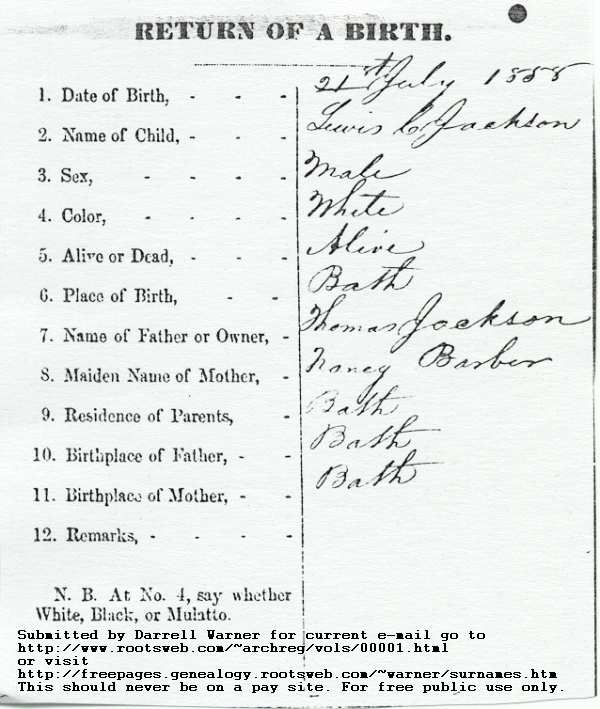 RETURN OF A BIRTH.
1. Date of Birth, - - - 21st July 1858
2. Name of Child, - - - Lewis C. Jackson
3. Sex, - - - - Male
4. Color, - - - - White
5. Alive or Dead, - - - Alive
6. Place of Birth, - - Bath
7. Name of Father or Owner, - Thomas Jackson
8. Maiden Name of Mother, - Nancy Barber
9. Residence of Parents, - Bath
10. Birthplace of Father, - - Bath
11. Birthplace of Mother, - - Bath
12. Remarks, - - - -
N. B. At No. 4, say whether
White, Black, or Mulatto.
Submitted by Darrell Warner for current e-mail go to
http://www.rootsweb.com/~archreg/vols/00001.html
or visit
http://freepages.genealogy.rootsweb.com/~warner/surnames.htm
This should never be on a pay site. For free public use only.